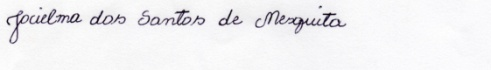 Jocielma dos Santos de Mesquita